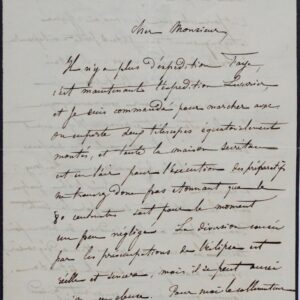 Cher Monsieur,
Il n'y a plus d'expédition Faye,
c'est maintenant l'expédition
et je suis commandé pour marcher avec
on emporte deux télescopes équatorialement
montés, et toute la maison Secretan
est en l'air pour l'exécution des préparatifs
ne trouvez donc pas étonnant que le
80 soit pour le moment
un peu négligé. La
par les prescriptions de est
réelle et sincère, mais il se peut aussi
Pour moi le collimateur